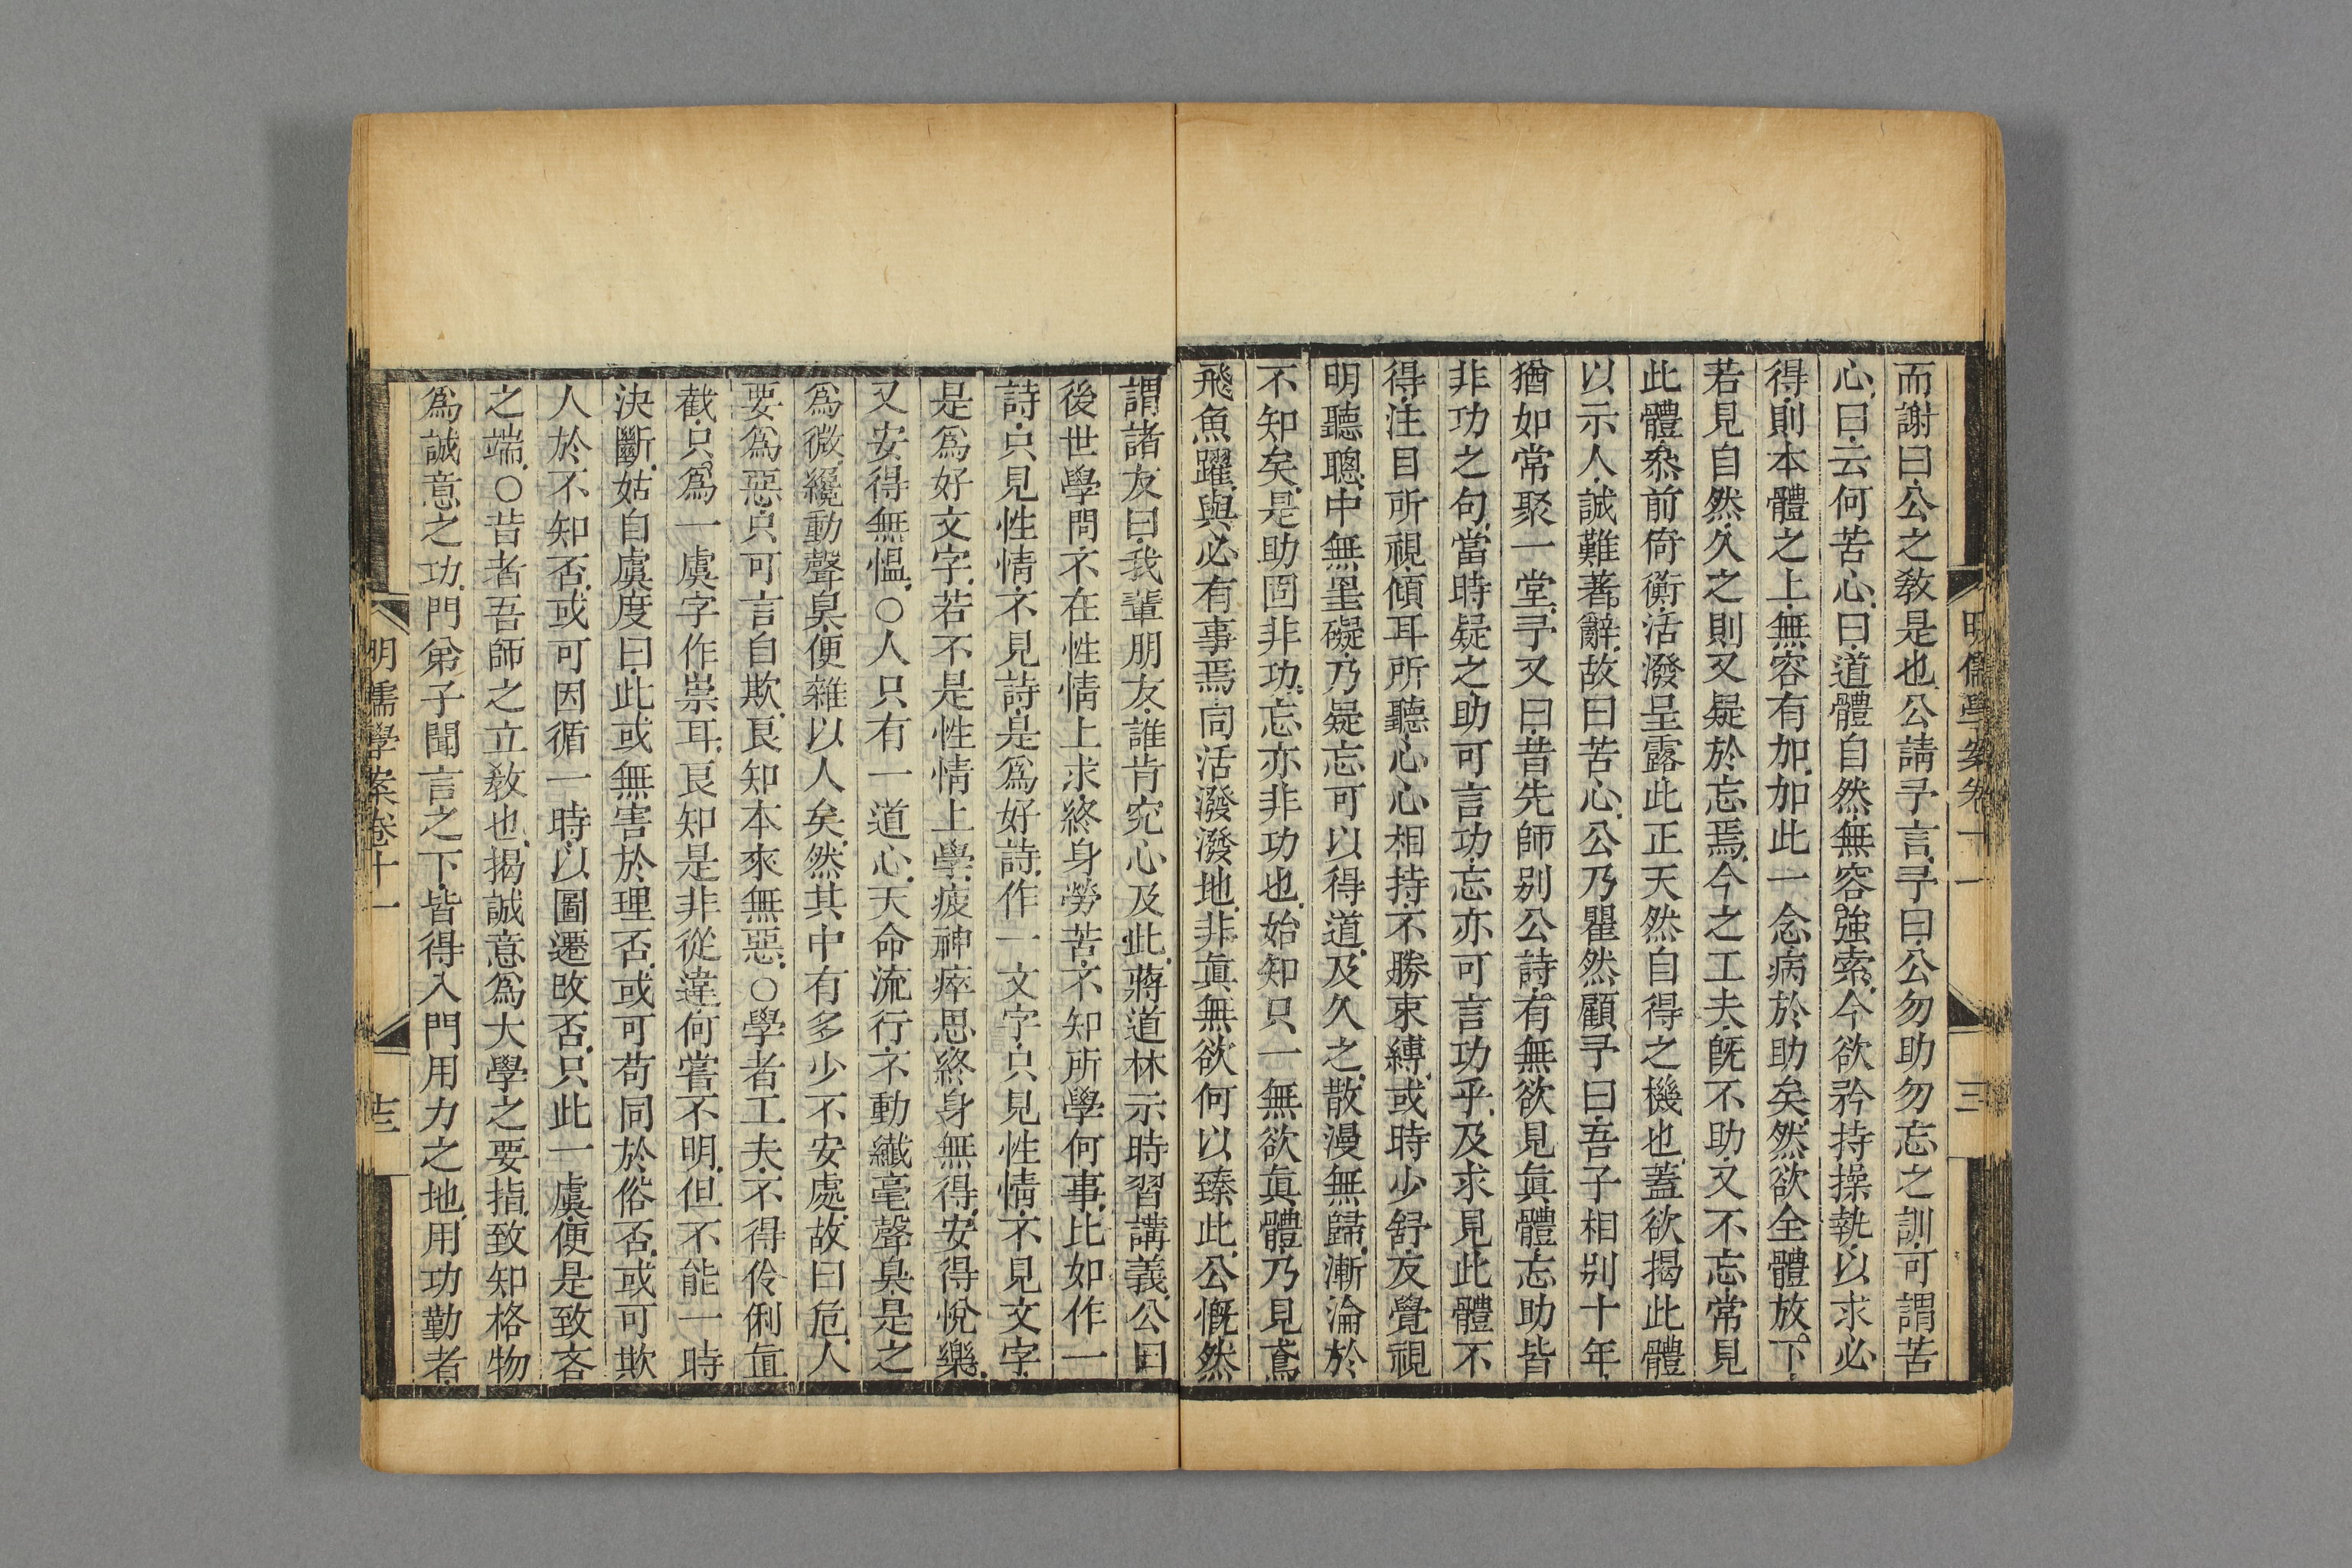 明儒學案卷十一
三
而謝曰公之敎是也公請予言予曰公勿助勿忘之訓可謂苦
心曰云何苦心曰道體自然無容強索今欲矜持操執以求必
得則本體之上無容有加加此一念病於助矣然欲全體放下
若見自然久之則又疑於忘焉今之工夫旣不助又不忘常見
此體叅前倚衡活潑呈露此正天然自得之機也蓋欲揭此體
以示人誠難著辭故曰苦心公乃瞿然顧予曰吾子相別十年
猶如常聚一堂予又曰昔先師別公詩有無欲見眞體忘助皆
非功之句當時疑之助可言功忘亦可言功乎及求見此體不
得注目所視傾耳所聽心心相持不勝束縛或時少舒友覺視
明聽聰中無罣礙乃疑忘可以得道及久之散漫無歸漸淪於
不知矣是助固非功忘亦非功也始知只一無欲眞體乃見鳶
飛魚躍與必有事焉同活潑潑地非眞無欲何以臻此公慨然
謂諸友曰我輩朋友誰肯究心及此蔣道林示時習講義公曰
後世學問不在性情上求終身勞苦不知所學何事比如作一
詩只見性情不見詩是爲好詩作一文字只見性情不見文字
是爲好文字若不是性情上學疲神瘁思終身無得安得悅樂
又安得無慍○人只有一道心天命流行不動纖毫聲臭是之
爲微纔動聲臭便雜以人矣然其中有多少不安處故曰危人
要爲惡只可言自欺良知本來無惡○學者工夫不得伶俐直
截只爲一虞字作祟耳良知是非從違何嘗不明但不能一時
決斷姑自虞度曰此或無害於理否或可苟同於俗否或可欺
人於不知否或可因循一時以圖遷改否只此一虞便是致吝
之端○昔者吾師之立敎也揭誠意爲大學之要指致知格物
爲誠意之功門弟子聞言之下皆得入門用力之地用功勤者
明儒學案卷十一
三